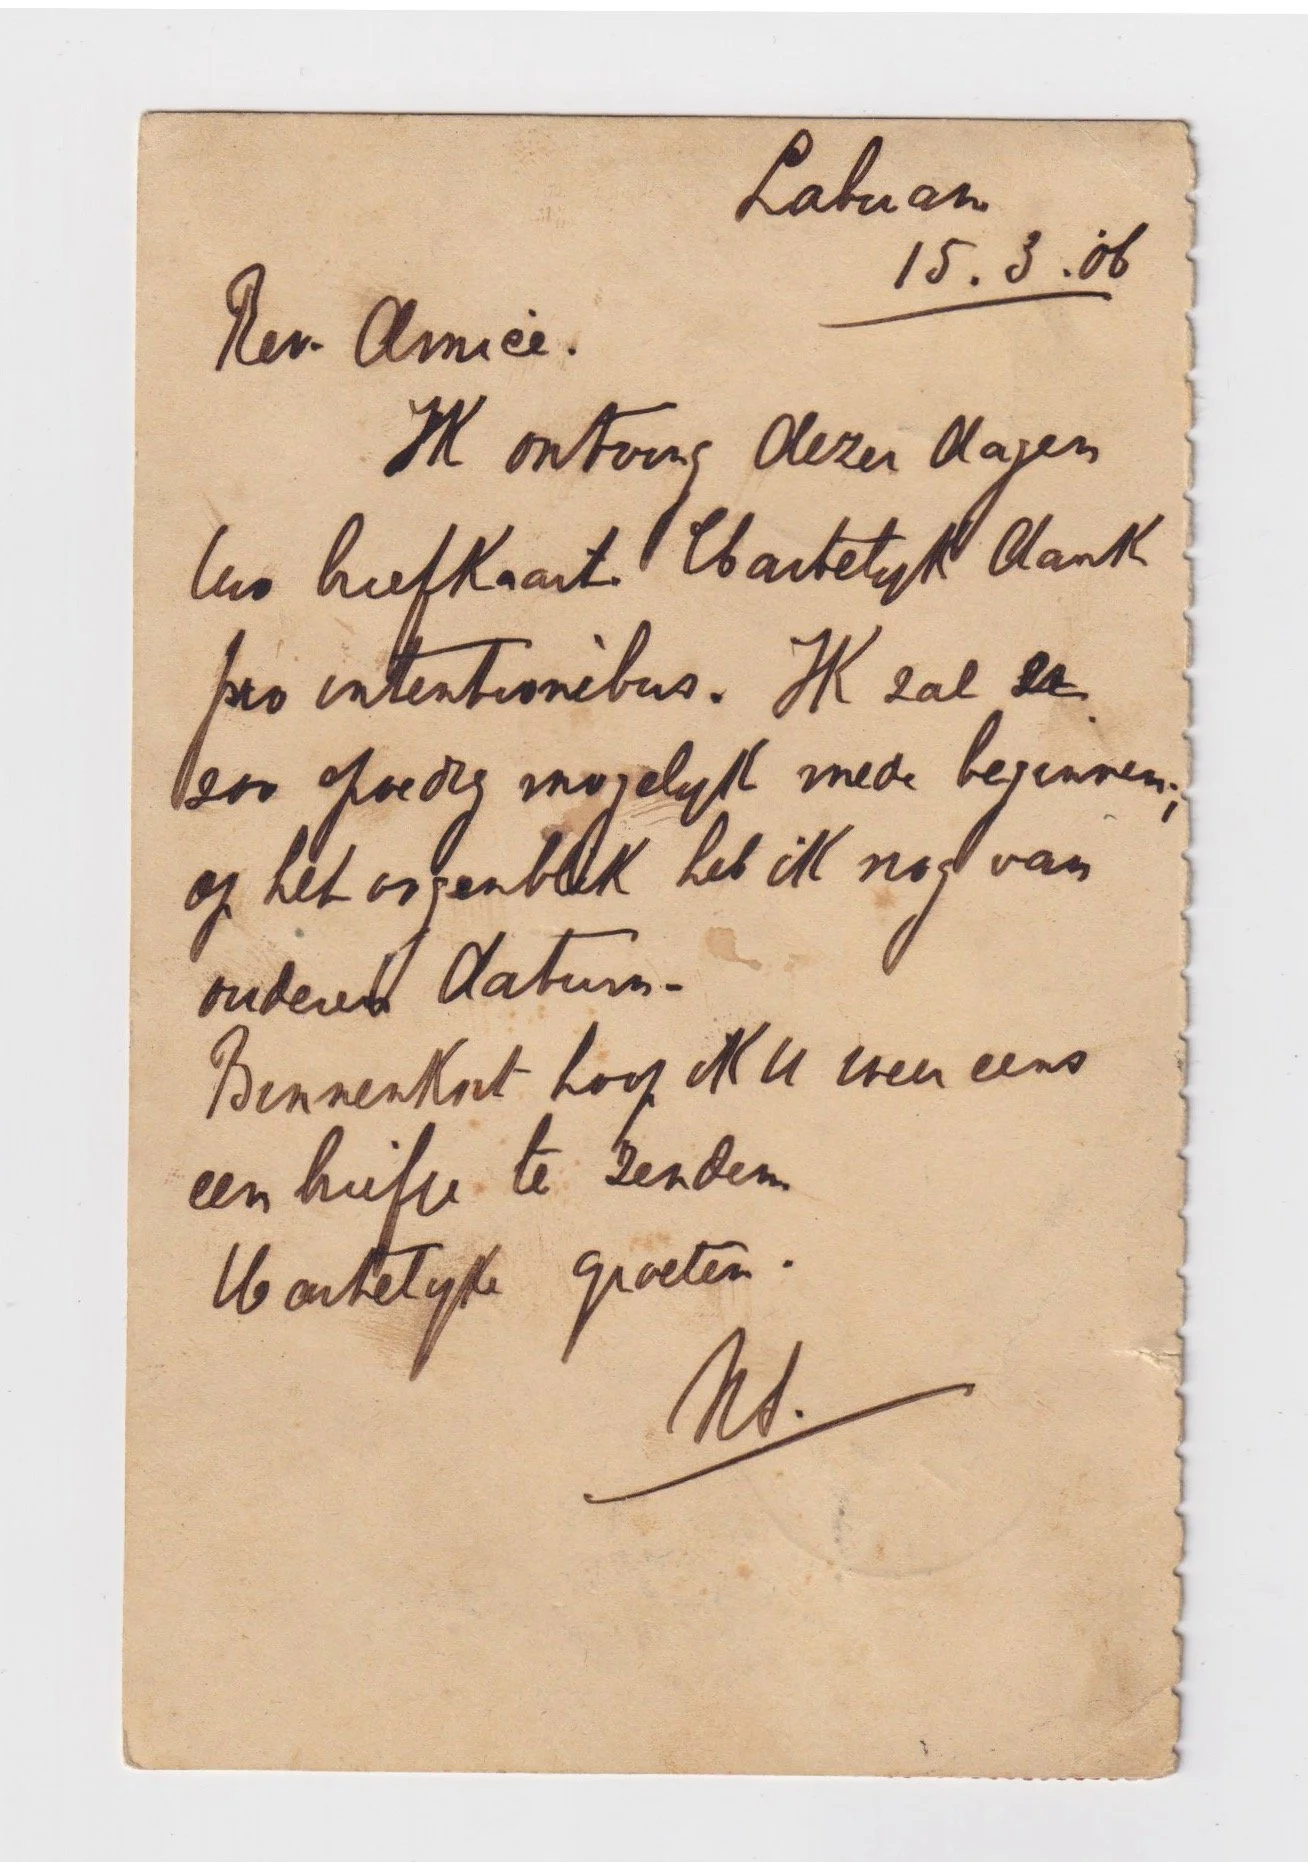 Labuan
15.3.06
Rev. Amice.
Ik ontving dezer dagen
Uw briefkaart. Hartelyk dank
pro intentionibus. Ik zal
zoo spoedig mogelyk mede beginnen;
op het oogenblik heb ik nog van
ouderen datum.
Binnenkort hoop ik U weer eens
een briefje te zenden
Hartelyke groeten.